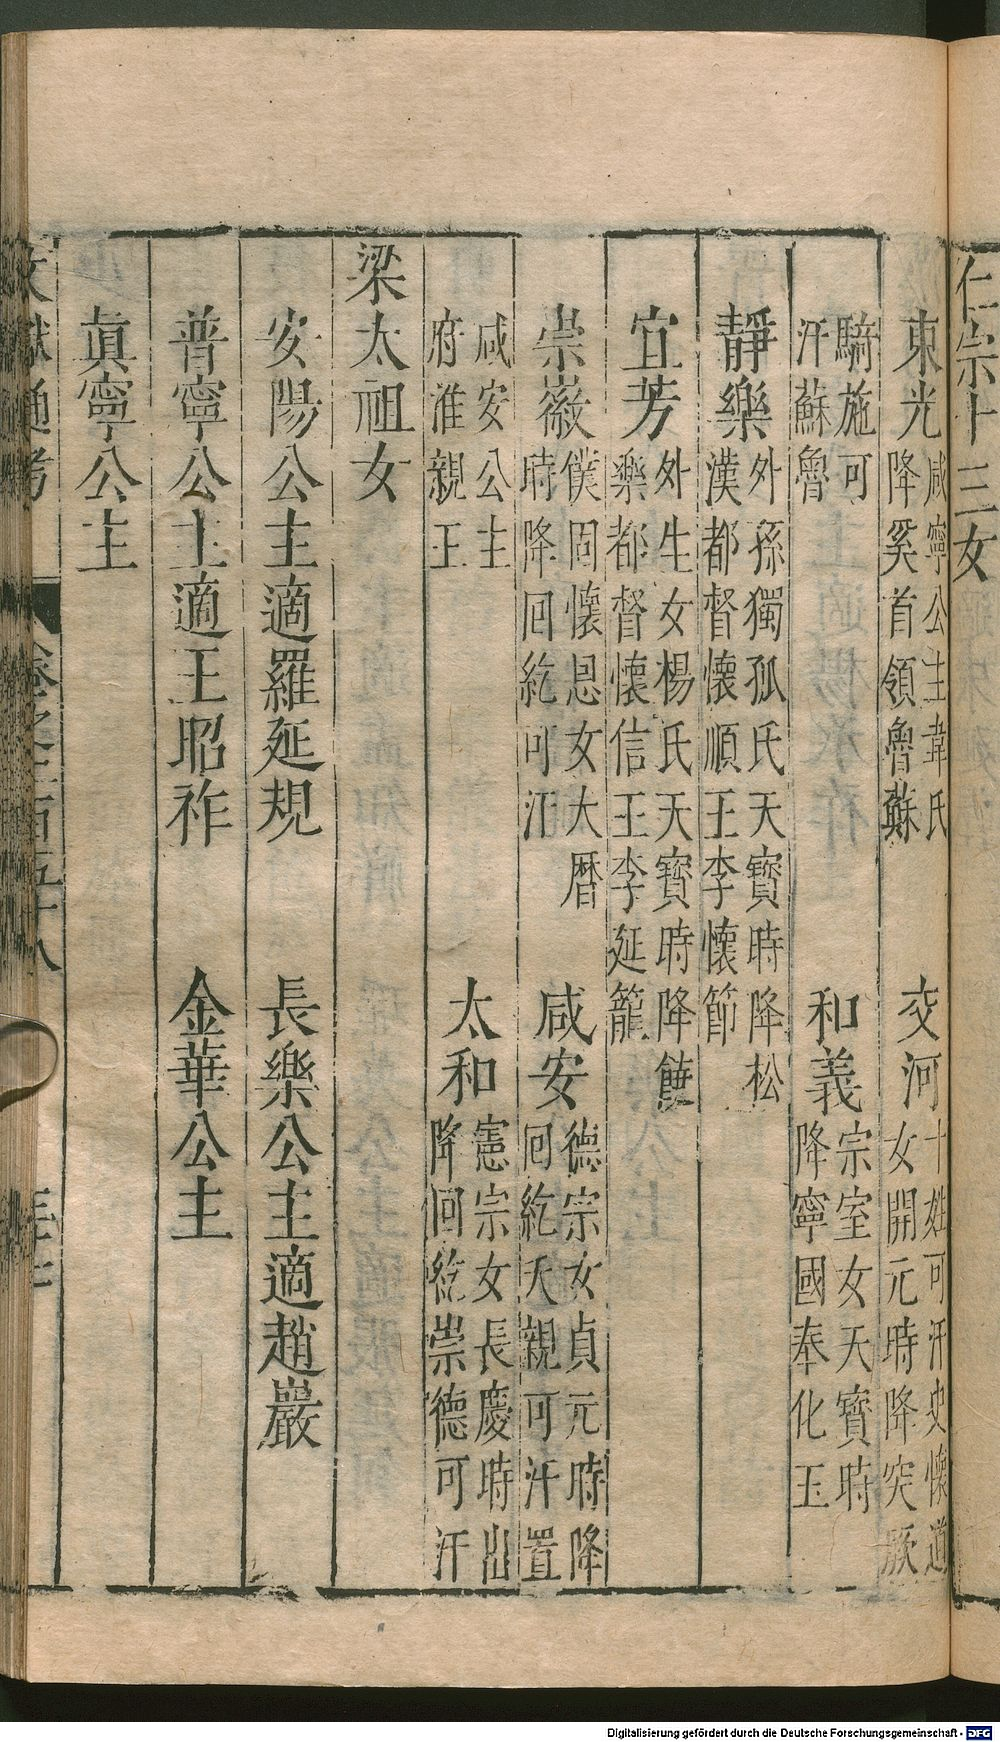 仁宗十三女
東光咸寧公主韋氏降奚首領魯蘇 交河十姓可汗史懷道女開元時降突厥
騎施可汗蘇魯 和義宗室女天寶時降寧國奉化王
靜樂外孫獨孤氏天寶時降松漠都督懷順王李懷節
宜芳外生女楊氏天寶時降饒樂都督懷信王李延寵
崇徽僕固懷恩女大曆時降回紇可汗 咸安德宗女貞元時降回紇天親可汗置
咸安公主府准親王 太和憲宗女長慶時出降回紇崇德可汗
梁太祖女
安陽公主適羅延規 長樂公主適趙巖
普寧公主適王昭祚 金華公主
眞寧公主
文獻通考 卷之二百五十八
Digitalisierung gefördert durch die Deutsche Forschungsgemeinschaft - DFG